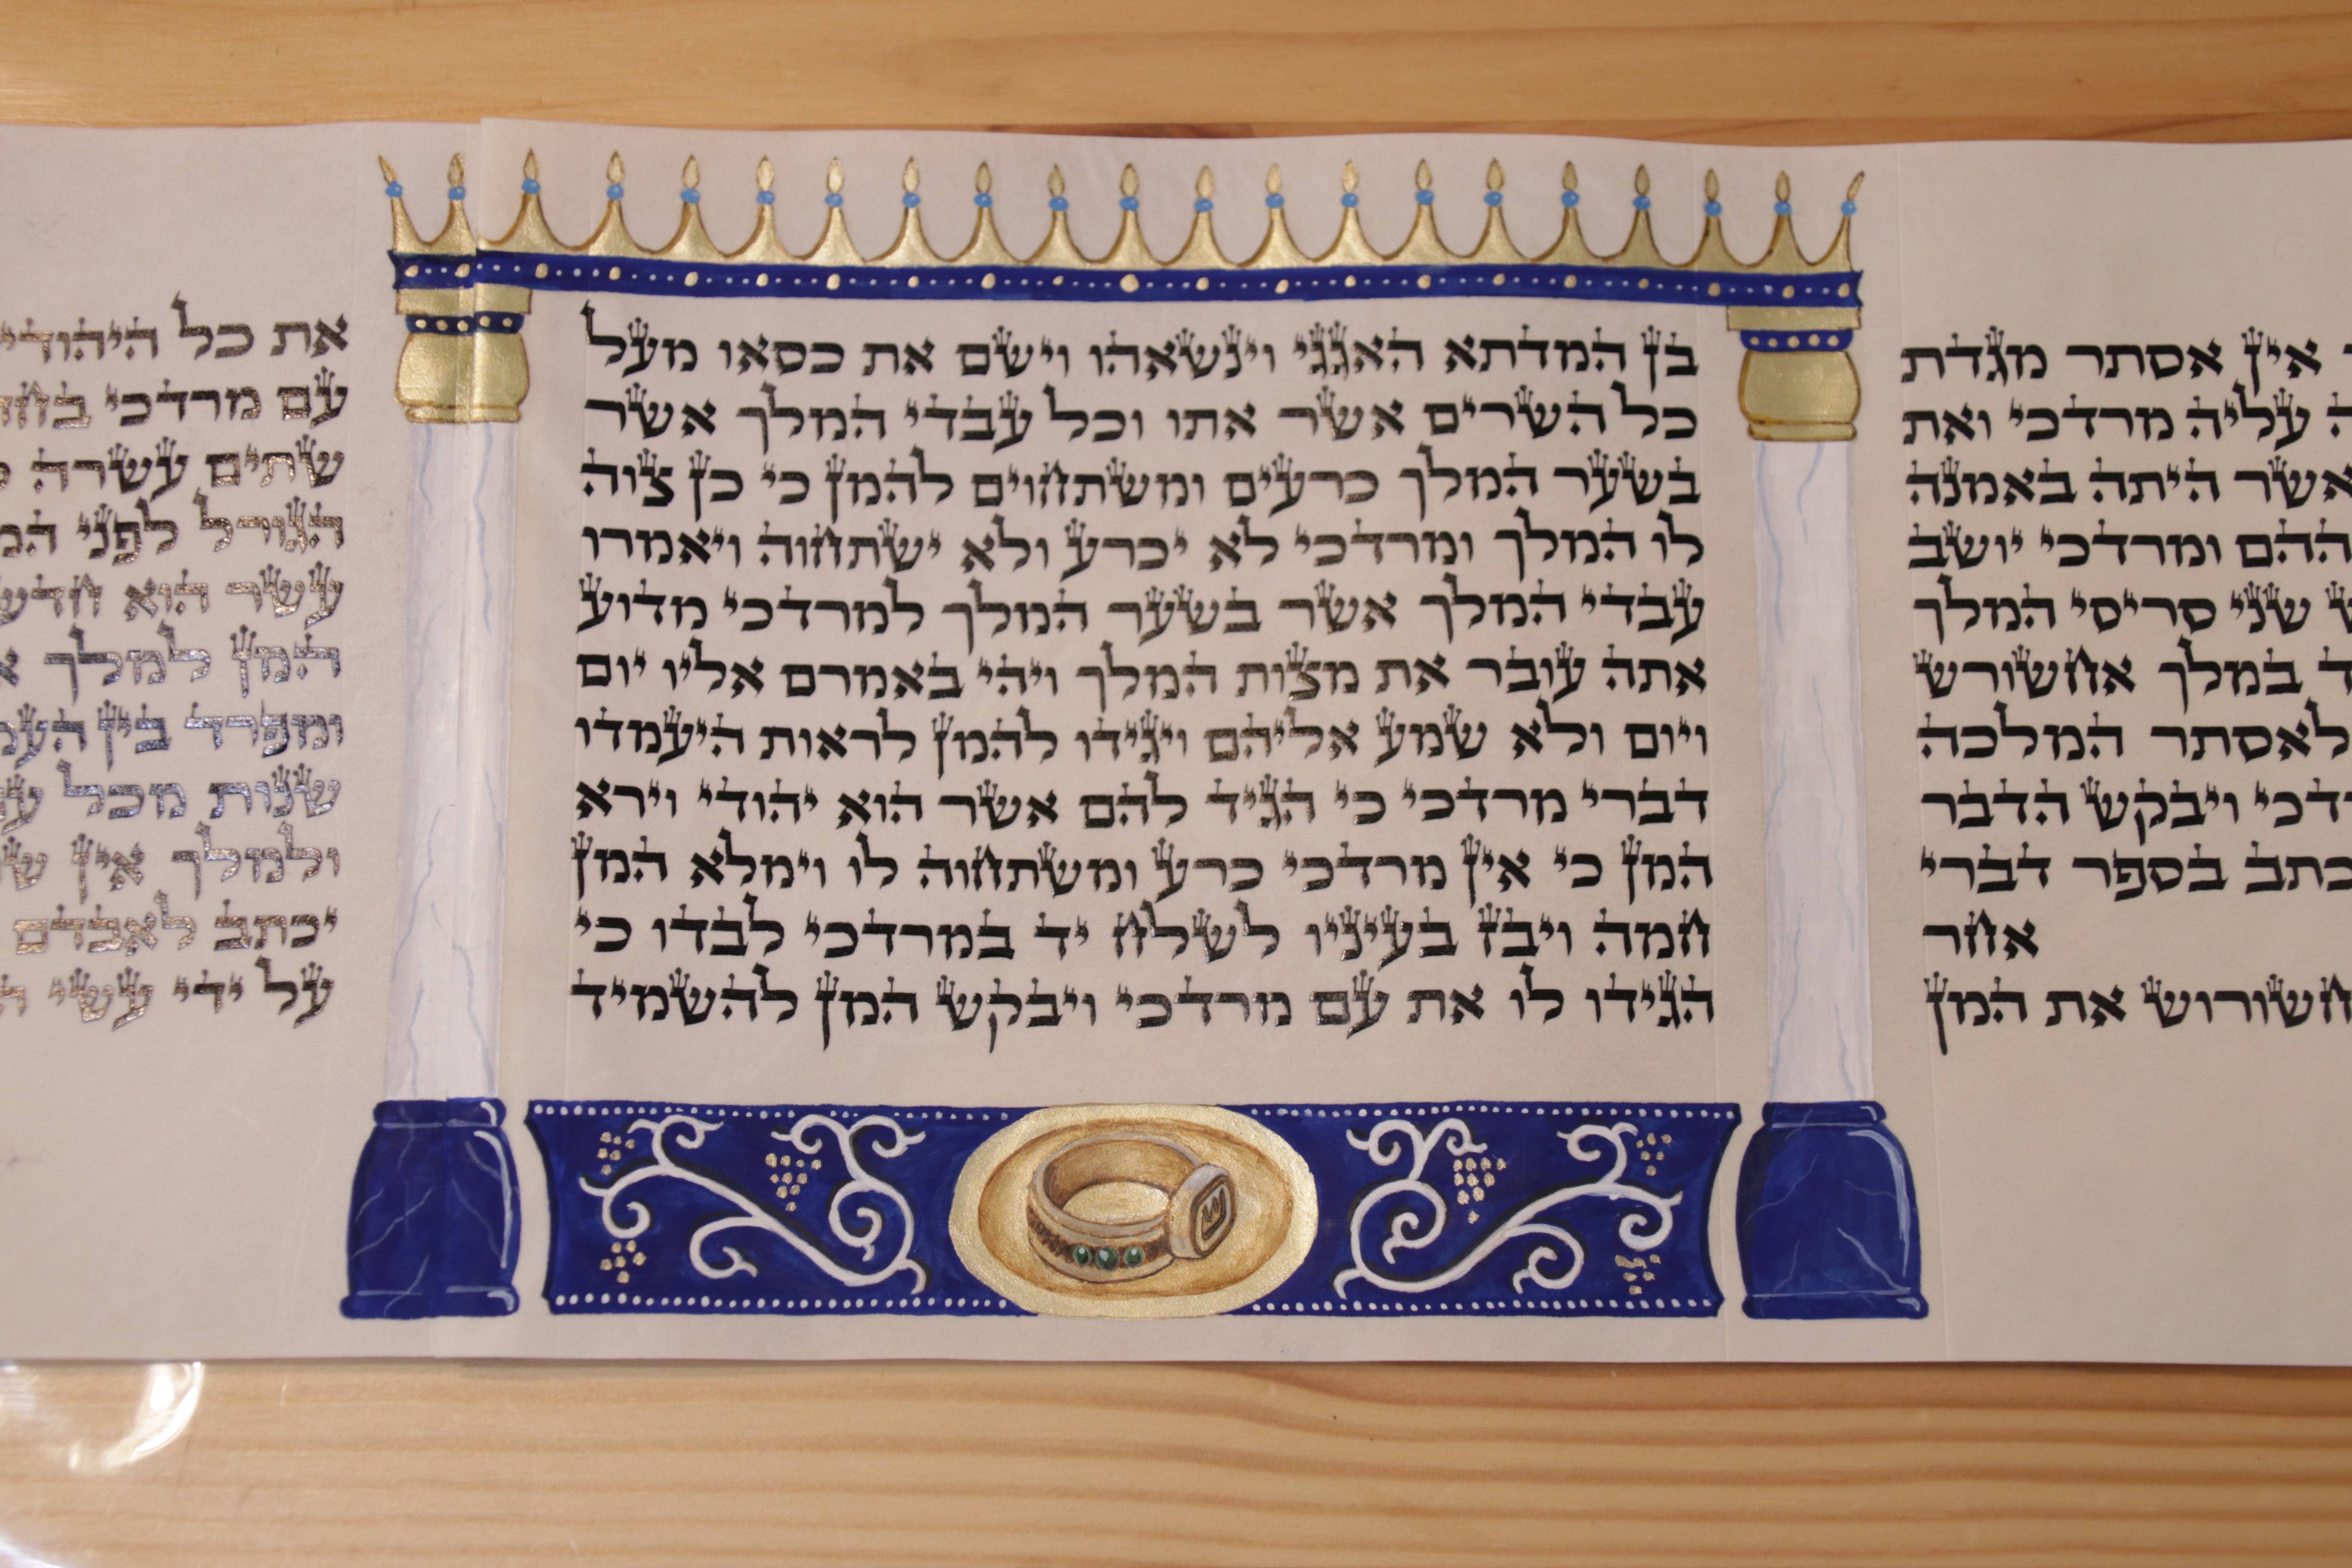 אין אסתר מגדת
עליה מרדכי ואת
אשר היתה באמנה
ההם ומרדכי יושב
שני סריסי המלך
במלך אחשורש
לאסתר המלכה
ויבקש הדבר
בספר דברי
אחר
את המן
בן המדתא האגגי וינשאהו וישם את כסאו מעל
כל השרים אשר אתו וכל עבדי המלך אשר
בשער המלך כרעים ומשתחוים להמן כי כן צוה
לו המלך ומרדכי לא יכרע ולא ישתחוה ויאמרו
עבדי המלך אשר בשער המלך למרדכי מדוע
אתה עובר את מצות המלך ויהי באמרם אליו יום
ויום ולא שמע אליהם ויגידו להמן לראות היעמדו
דברי מרדכי כי הגיד להם אשר הוא יהודי וירא
המן כי אין מרדכי כרע ומשתחוה לו וימלא המן
חמה ויבז בעיניו לשלח יד במרדכי לבדו כי
הגידו לו את עם מרדכי ויבקש המן להשמיד
את כל
עם מרדכי
שתים עשרה
הגורל לפני
עשר הוא
המן למלך
ומפרד בין
שנות מכל
ולמלך אין
יכתב לאבדם
על ידי עשי